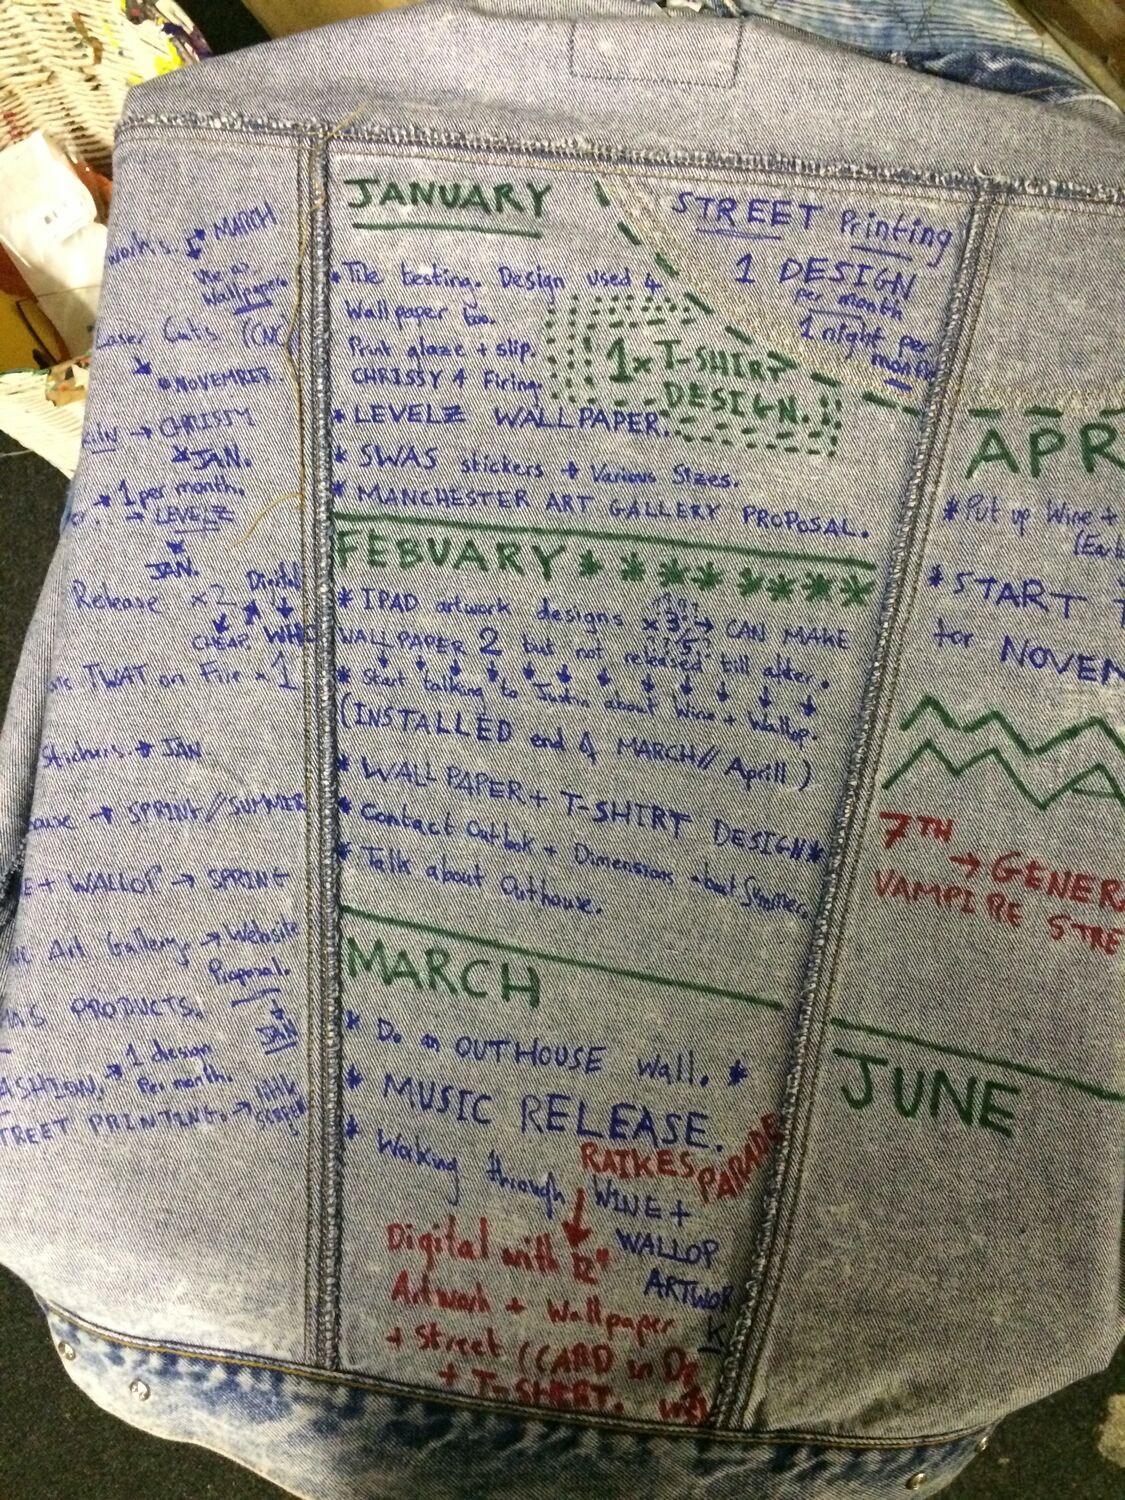 works. → MARCH
Use as
wallpaper.
Laser Cuts ((CNC))
NOVEMBER.
→ CHRISSY
JAN.
1 per month.
→ LEVELZ
JAN.
Release x2 Digital
CHEAP.
TWAT on Fire x 1
Stickers → JAN
→ SPRING//SUMMER
+ WALLOP → SPRING
Art Gallery. → Website
Proposal.
JAN
PRODUCTS.
→ 1 design
Per month.
STREET PRINTING. → little
JANUARY
*Tile testing. Design used 4
Wallpaper too.
Print glaze + slip.
CHRISSY 4 Firing.
1x T-SHIRT
DESIGN.
*LEVELZ WALLPAPER.
* SWAS stickers + Various Sizes.
* MANCHESTER ART GALLERY PROPOSAL.
STREET Printing
1 DESIGN
per month
1 night per
month
FEBUARY ********
* IPAD artwork designs x 3 → CAN MAKE
WALLPAPER 2 but not released till after.
* Start talking to Justin about Wine + Wallop.
(INSTALLED end 4 MARCH// Aprill)
* WALLPAPER + T-SHIRT DESIGN*
* Contact Outlook + Dimensions about Summer.
* Talk about Outhouse.
MARCH
* Do an OUTHOUSE Wall. *
* MUSIC RELEASE.
RAIKES PARADE
* Working through WINE +
WALLOP
ARTWORK
Digital with 12"
Artwork + Wallpaper
+ Street ((CARD in
+ T-SHIRT.
APR
*Put up Wine +
* START
for NOVEM
7TH
→ GENER
VAMPIRE STRE
JUNE